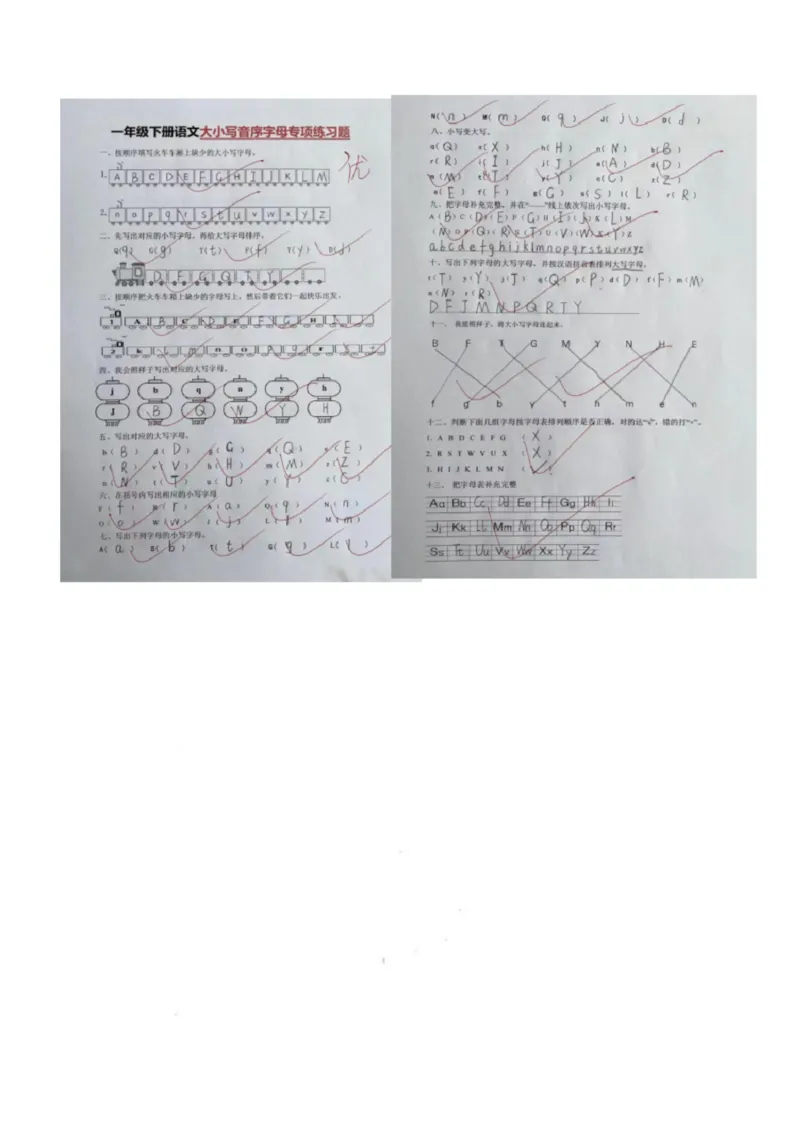 一年级下册语文大小写音序字母专项练习题
优
一、按顺序填写火车车厢上缺少的大小写字母。
1. A B C D E F G H I J K L M
2. n o p q r s t u v w x y z
二、先写出对应的小写字母，再给大写字母排序。
Q(q) G(g) T(t) F(f) Y(y) D(d)
D F G Q T Y
三、按顺序把火车车厢上缺少的字母写上，然后带着它们一起快乐出发。
1 A B C D E F G H I J
2 k l m n o p q r s t
四、我会照样子写出对应的大写字母。
j b q n y h
J B Q N Y H
五、写出对应的大写字母。
b(B) d(D) g(G) q(Q) e(E)
r(R) v(V) h(H) m(M) z(Z)
n(N) t(T) u(U) y(Y) c(C)
六、在括号内写出相应的小写字母
F(f) R(r) A(a) Q(q) N(n)
O(o) W(w) J(j) M(m)
七、写出下列字母的小写字母。
A(a) B(b) T(t) L(l)
N(n) M(m) Q(q) J(j) D(d)
八、小写变大写。
q(Q) x(X) h(H) n(N) b(B)
r(R) i(I) j(J) a(A) d(D)
m(M) t(T) y(Y) c(C) z(Z)
e(E) f(F) g(G) s(S) l(L) r(R)
九、把字母补充完整，并在“——”线上依次写出小写字母。
A(B)C(D)(E)F(G)H(I)(J)K(L)M
(N)O P(Q)(R)S(T)U(V)(W)X(Y)Z
abcdefghijklmnopqrstuvwxyz
十、写出下列字母的大写字母，并按汉语拼音表排列大写字母。
t(T) y(Y) j(J) q(Q) p(P) d(D) f(F) m(M)
n(N) r(R)
D F J M N P Q R T Y
十一、我能照样子，将大小写字母连起来。
B F T G M Y N H E
f g b y t h m e n
十二、判断下面几组字母按字母表排列顺序是否正确，对的达“√”，错的打“×”。
1. A B D C E F G (X)
2. R S T W V U X (X)
3. H I J K L M N (√)
十三、把字母表补充完整
Aa Bb Cc Dd Ee Ff Gg Hh Ii
Jj Kk Ll Mm Nn Oo Pp Qq Rr
Ss Tt Uu Vv Ww Xx Yy Zz